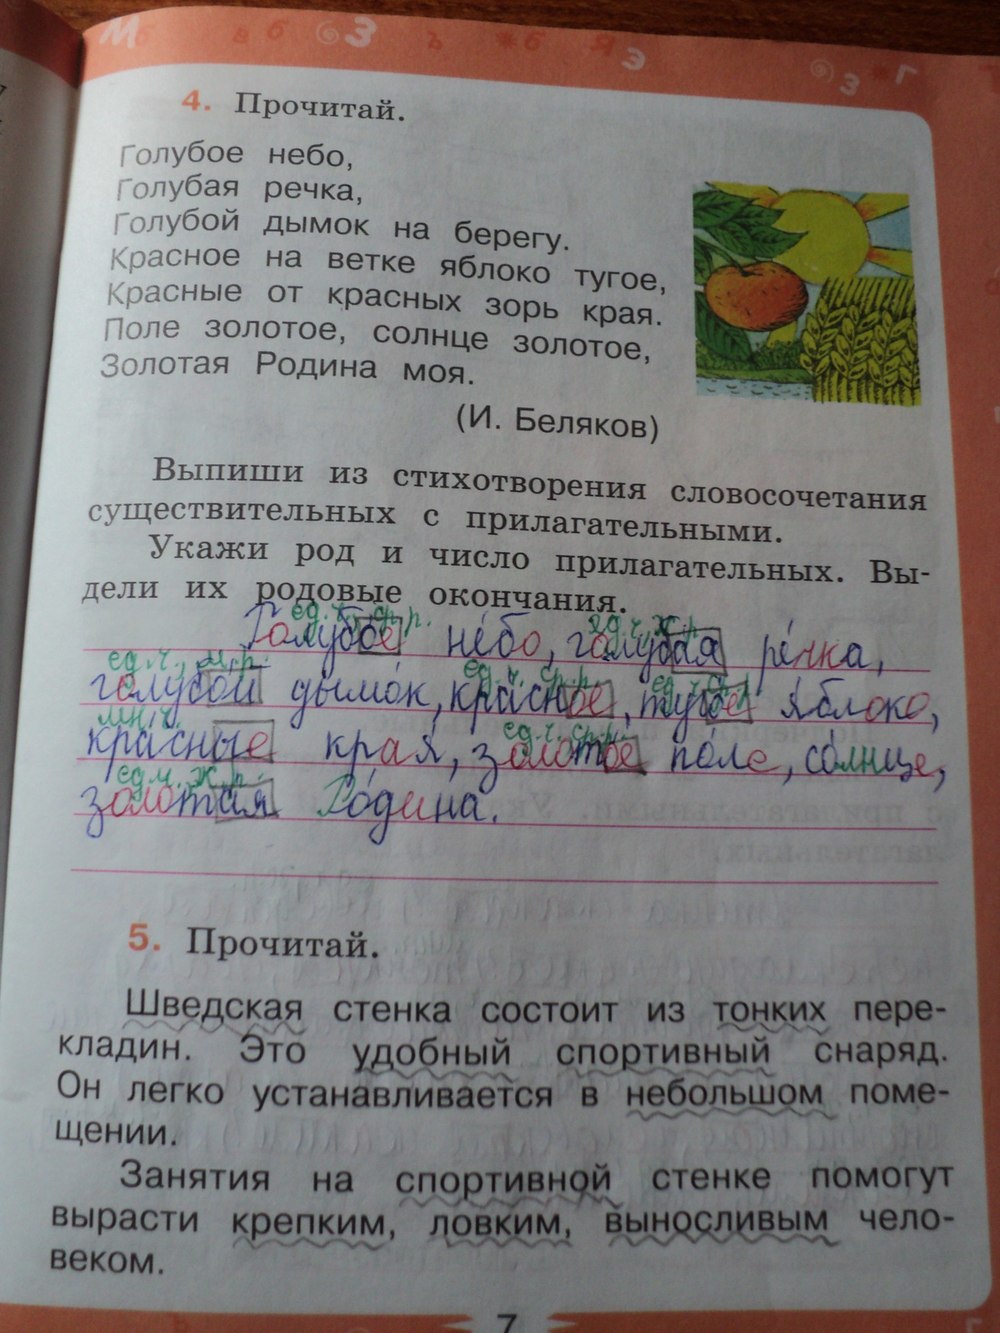 4. Прочитай.
Голубое небо,
Голубая речка,
Голубой дымок на берегу.
Красное на ветке яблоко тугое,
Красные от красных зорь края.
Поле золотое, солнце золотое,
Золотая Родина моя.
(И. Беляков)
Выпиши из стихотворения словосочетания
существительных с прилагательными.
Укажи род и число прилагательных. Вы-
дели их родовые окончания.
ед.ч., ср.р. ед.ч., ж.р.
Голубое небо, голубая речка,
ед.ч., м.р. ед.ч., ср.р. ед.ч., ср.р.
голубой дымок, красное, тугое яблоко,
мн.ч. ед.ч., ср.р.
красные края, золотое поле, солнце,
ед.ч., ж.р.
золотая Родина.
5. Прочитай.
Шведская стенка состоит из тонких пере-
кладин. Это удобный спортивный снаряд.
Он легко устанавливается в небольшом поме-
щении.
Занятия на спортивной стенке помогут
вырасти крепким, ловким, выносливым чело-
веком.
7